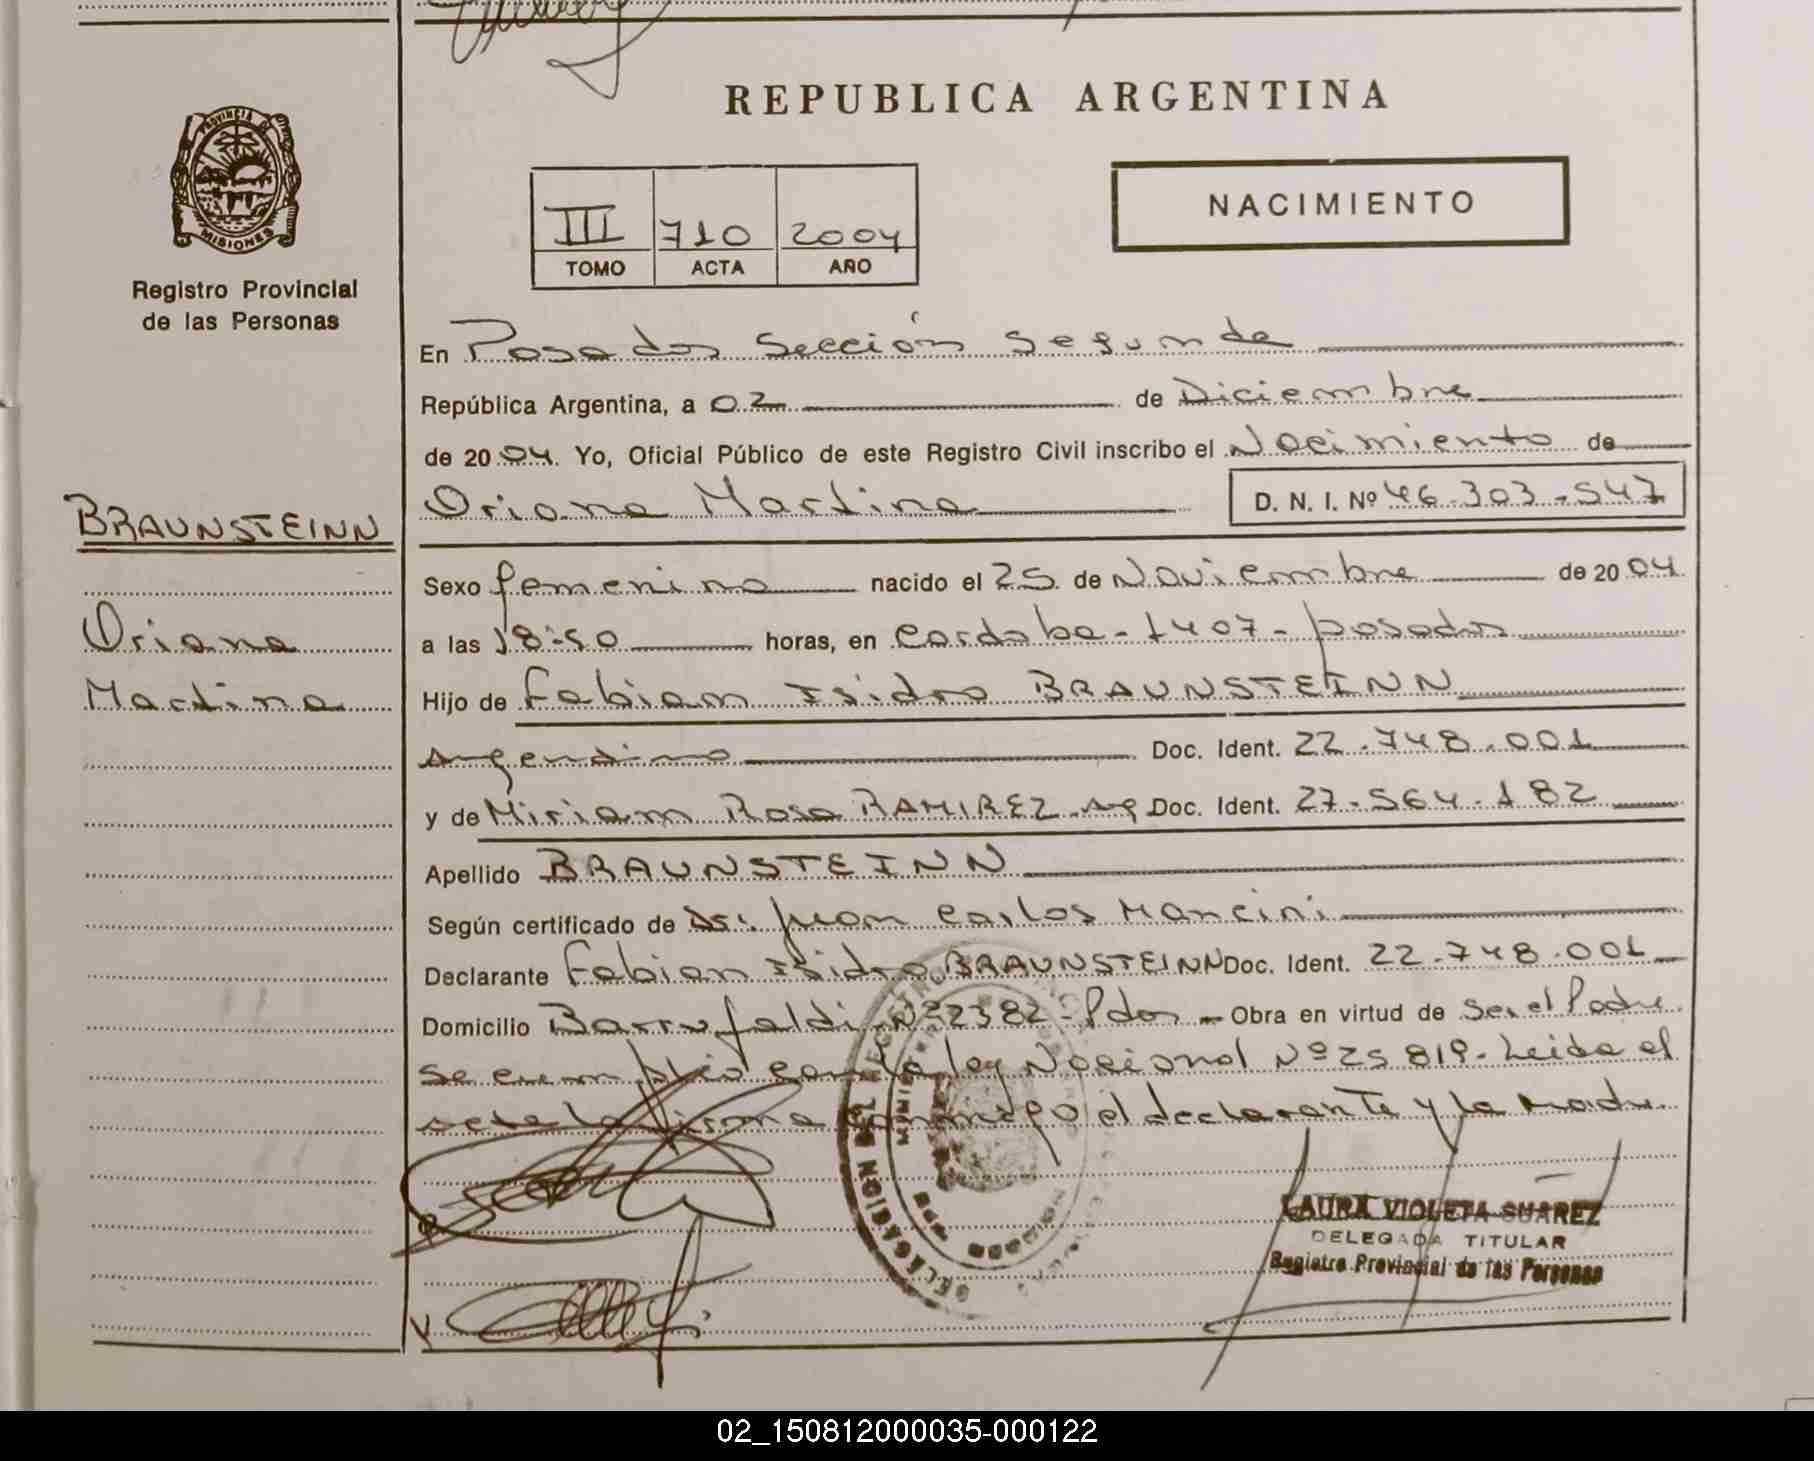 REPUBLICA ARGENTINA
PROVINCIA DE
MISIONES
Registro Provincial
de las Personas
NACIMIENTO
III 710 2004
TOMO ACTA AÑO
En Posadas Sección Segunda
República Argentina, a 02 de Diciembre
de 2004. Yo, Oficial Público de este Registro Civil inscribo el Nacimiento de
Oriana Martina D. N. I. Nº 46.303-547
BRAUNSTEINN
Oriana
Martina
Sexo femenino nacido el 25 de Noviembre de 2004
a las 18:50 horas, en Cordoba-1407-posadas
Hijo de Fabian Isidro BRAUNSTEINN
Argentino Doc. Ident. 22.748.001
y de Miriam Rosa RAMIREZ Arg Doc. Ident. 27-564.182
Apellido BRAUNSTEINN
Según certificado de Dr. Juan Carlos Mancini
Declarante Fabian Isidro BRAUNSTEINN Doc. Ident. 22.748.001
Domicilio Barrufaldi Nº 2382-Pdas- Obra en virtud de ser el Padre.
Se cumplió con la ley Nacional Nº 25 819. Leida el
acta la firma conmigo el declarante y la madre.
LAURA VIOLETA SUAREZ
DELEGADA TITULAR
Registro Provincial de las Personas
02_150812000035-000122